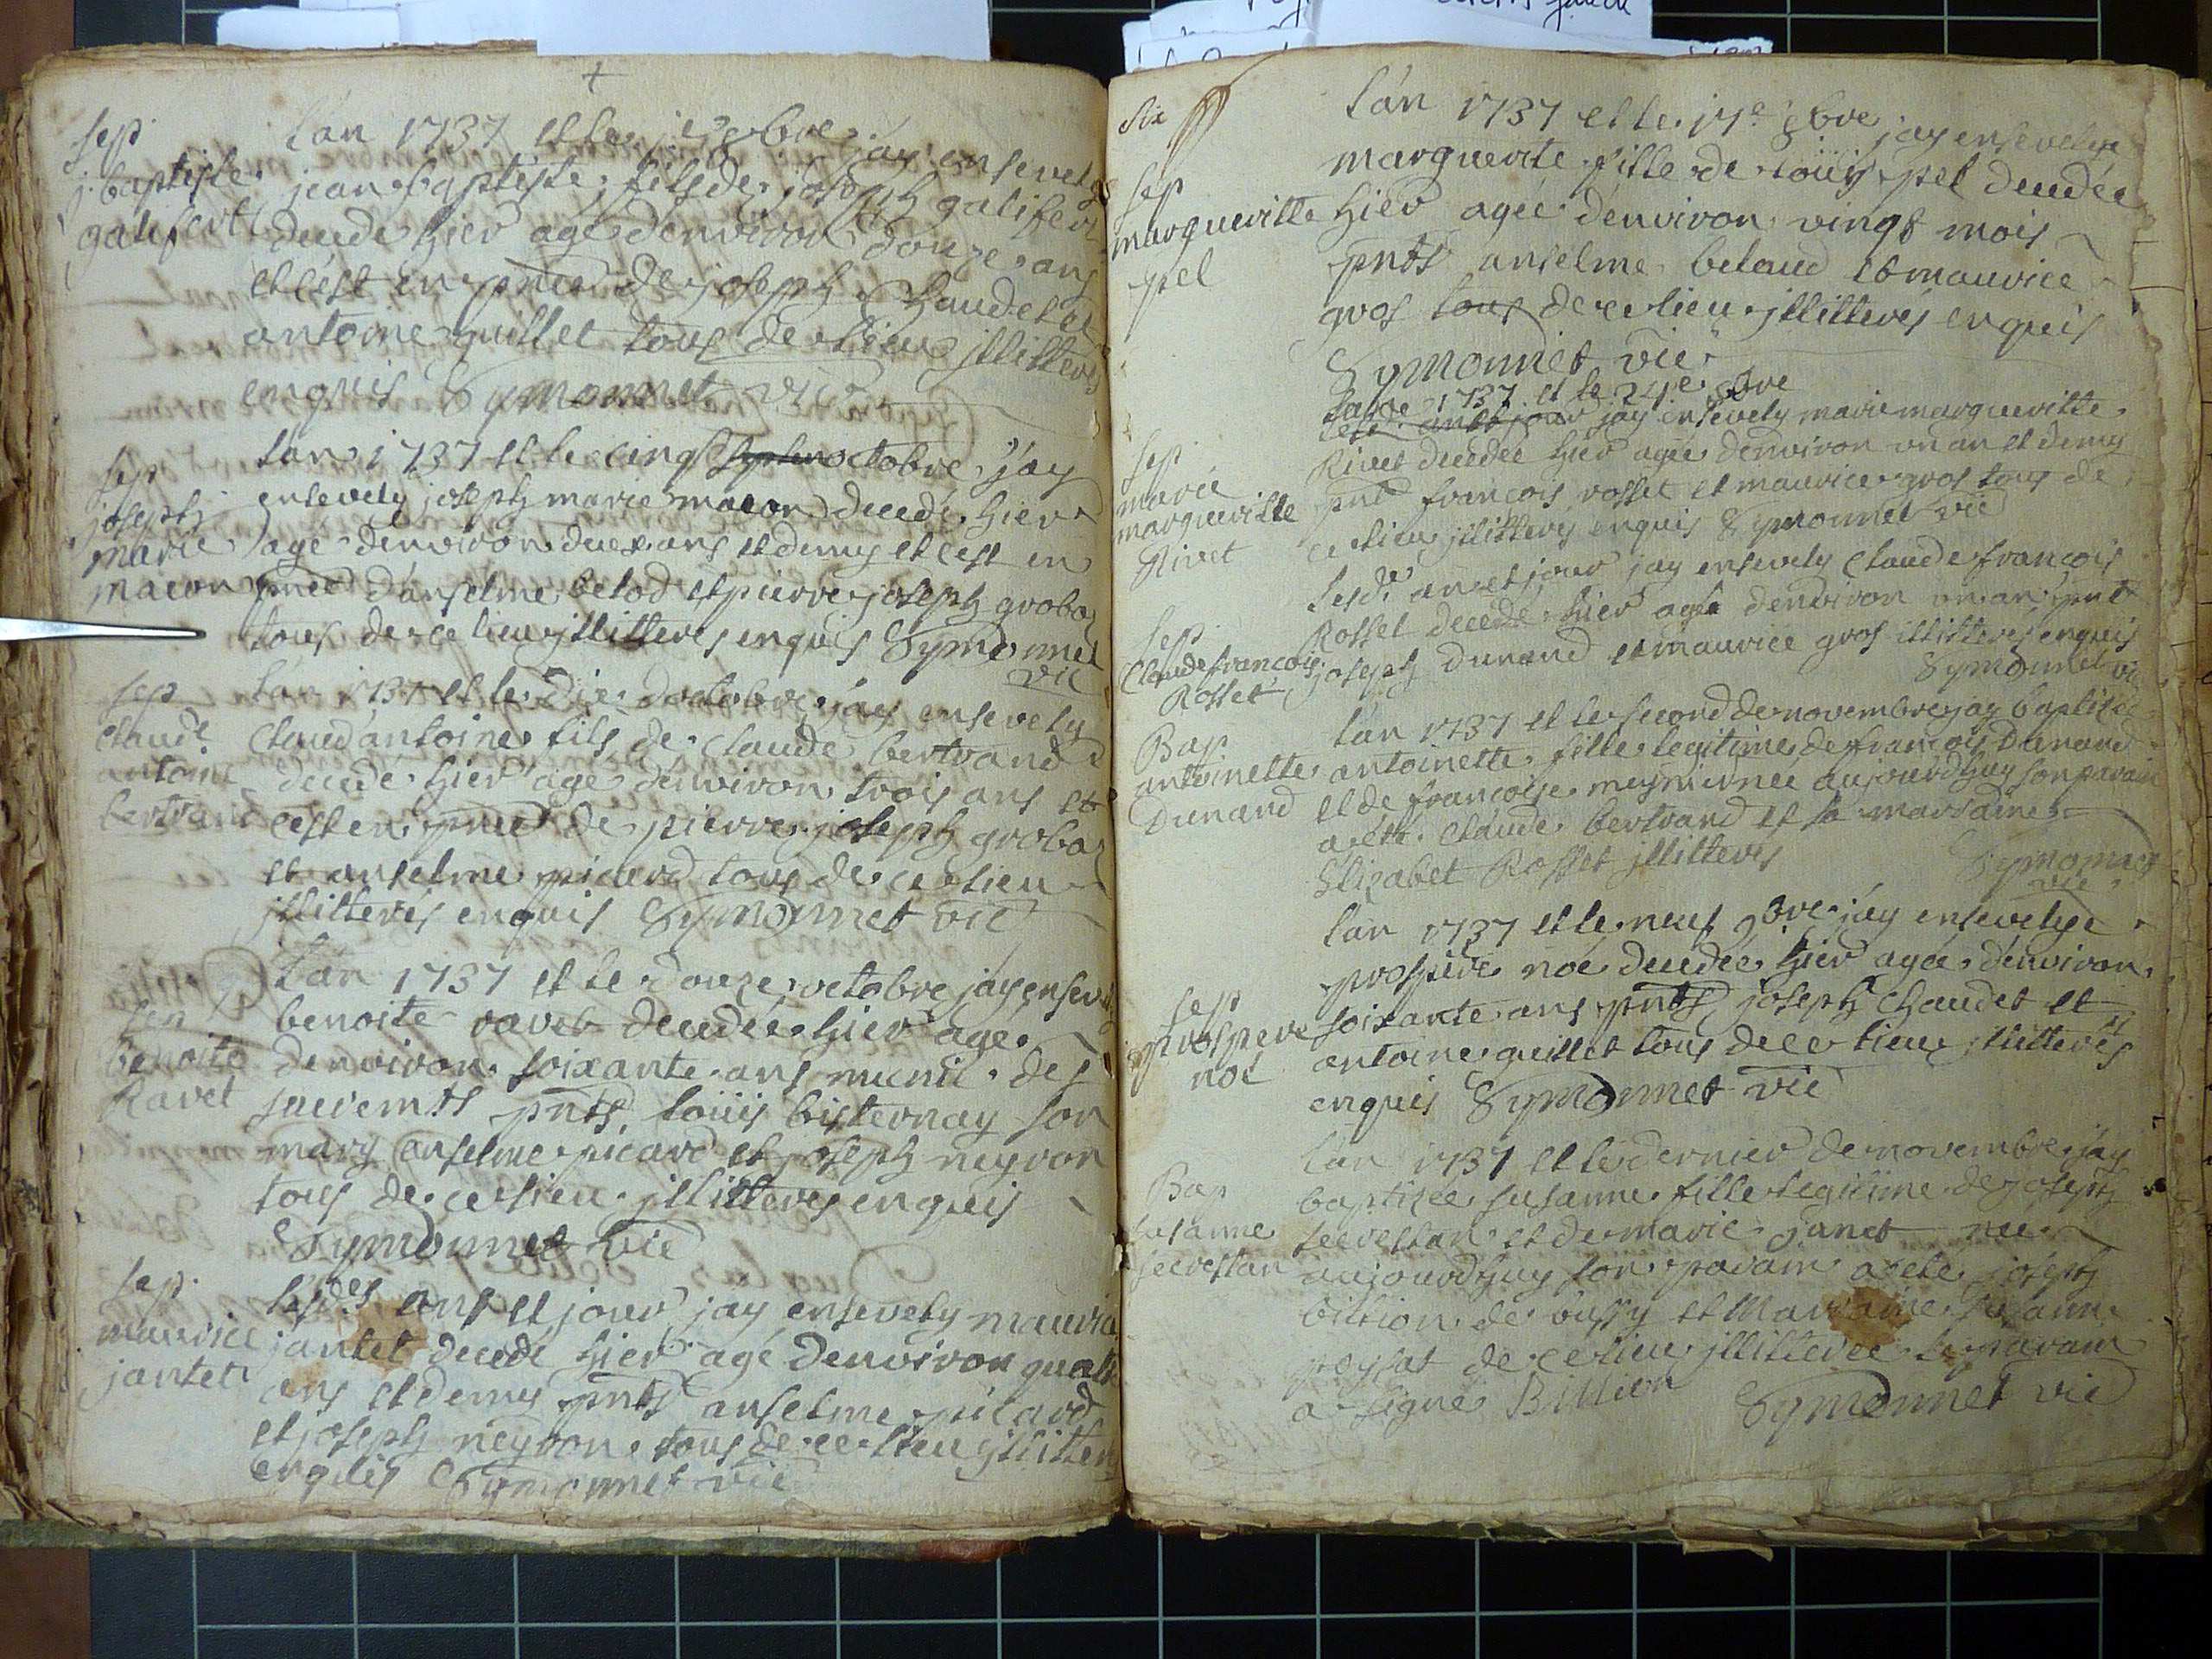 +
Sep
j. baptiste
galifert
Lan 1737 et le 8bre jay ensevely
jean baptiste fils de joseph galifert
decedé hier agé denviron douze ans
et cest en pnce de joseph Chaudet et
antoine quillet tous de ce lieu jllitterés
enquis Symonnet vic
Sep
joseph
marie
macon
Lan 1737 et le cinq octobre jay
ensevely joseph marie macon decedé hier
agé denviron deux ans et demy et cest en
pnce danselme belod et pierre joseph grobaz
tous de ce lieu jllitteres enquis Symonnet
vic
Sep
Claude
antoine
bertrand
Lan 1737 et le dix doctobre jay ensevely
Claud antoine fils de Claude bertrand
decedé hier agé denviron trois ans et
cest en pnce de pierre joseph grobaz
et anselme picard tous de ce lieu
jllitterés enquis Symonnet vic
Sep
benoite
Ravet
Lan 1737 et le douze octobre jay ensev
benoite ravet decedée hier agé
denviron soixante ans munie des
sacremts pnts loüis bisternay son
mary anselme picard et joseph neyron
tous de ce lieu jllitteres enquis
Symonnet vic
Sep
maurice
jantet
Lesdes ans et jour jay ensevely maurice
jantet decedé hier agé denviron quatre
ans et demy pnts anselme picard
et joseph neyron tous de ce lieu jllitter
enquis Symonnet vic
Six
Sep
margueritte
pel
Lan 1737 et le 17e 8bre jay ensevelye
marguerite fille de loüis pel decedée
hier ageé denviron vingt mois
pnts anselme belaud et maurice
gros tous de ce lieu jllitterés enquis
Symonnet vic
Sep
marie
margueritte
Rivet
Lande 1737 et le 24e 8bre
jay ensevely marie margueritte
Rivet decedée hier agée denviron un an et demy
pnts francois rosset et maurice gros tous de
ce lieu jllitteres enquis Symonnet vic
Sep
Claude francois
Rosset
Lesde an et jour jay ensevely Claude francois
Rosset decedé hier agé denviron un an pnts
joseph Dunand et maurice gros illitterés enquis
Symonnet vic
Bap
antoinette
Dunand
Lan 1737 et le second de novembre jay baptisée
antoinette fille legitime de francois Dunand
et de francoise née aujourdhuy son parain
a été Claude bertrand et sa marraine
Elizabet Rosset jllitterés Symonnet
vic
Sep
prospere
noé
Lan 1737 et le neuf 9bre jay ensevelye
prospere noé decedée hier agée denviron
soixante ans pnts joseph Chaudet et
antoine quillet tous de ce lieu jllitterés
enquis Symonnet vic
Bap
susanne
Lan 1737 et le dernier de novembre jay
baptizée susanne fille legitime de joseph
et de marie janet née
aujourdhuy son parain a eté joseph
billion de bussy et Marraine susanne
de ce lieu jllitterée le parain
a signé Billion Symonnet vic